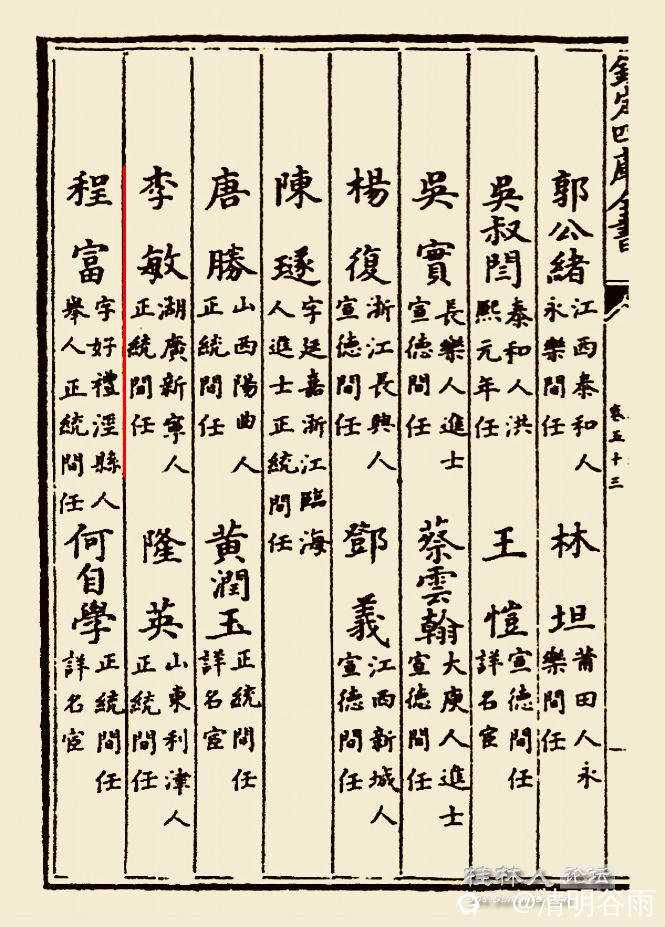 欽定四庫全書
卷五十三
郭公緒 江西泰和人永樂間任 林坦 莆田人永樂間任
吳叔閆 泰和人洪熙元年任 王愷 宣德間任詳名宦
吳實 長樂人進士宣德間任 蔡雲翰 大庾人進士宣德間任
楊復 浙江長興人宣德間任 鄧義 江西新城人宣德間任
陳璲 字廷嘉浙江臨海人進士正統間任
唐勝 山西陽曲人正統間任 黃潤玉 正統間任詳名宦
李敏 湖廣新寧人正統間任 隆英 山東利津人正統間任
程富 字好禮涇縣人舉人正統間任 何自學 正統間任詳名宦
桂林人论坛
@清明谷雨